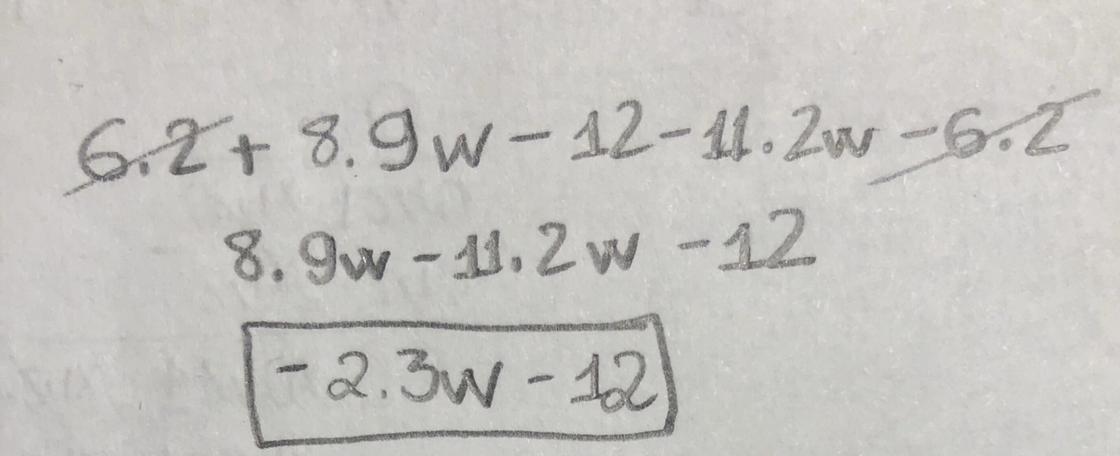 6.2 + 8.9w - 12 - 11.2w - 6.2
8.9w - 11.2w - 12
-2.3w - 12